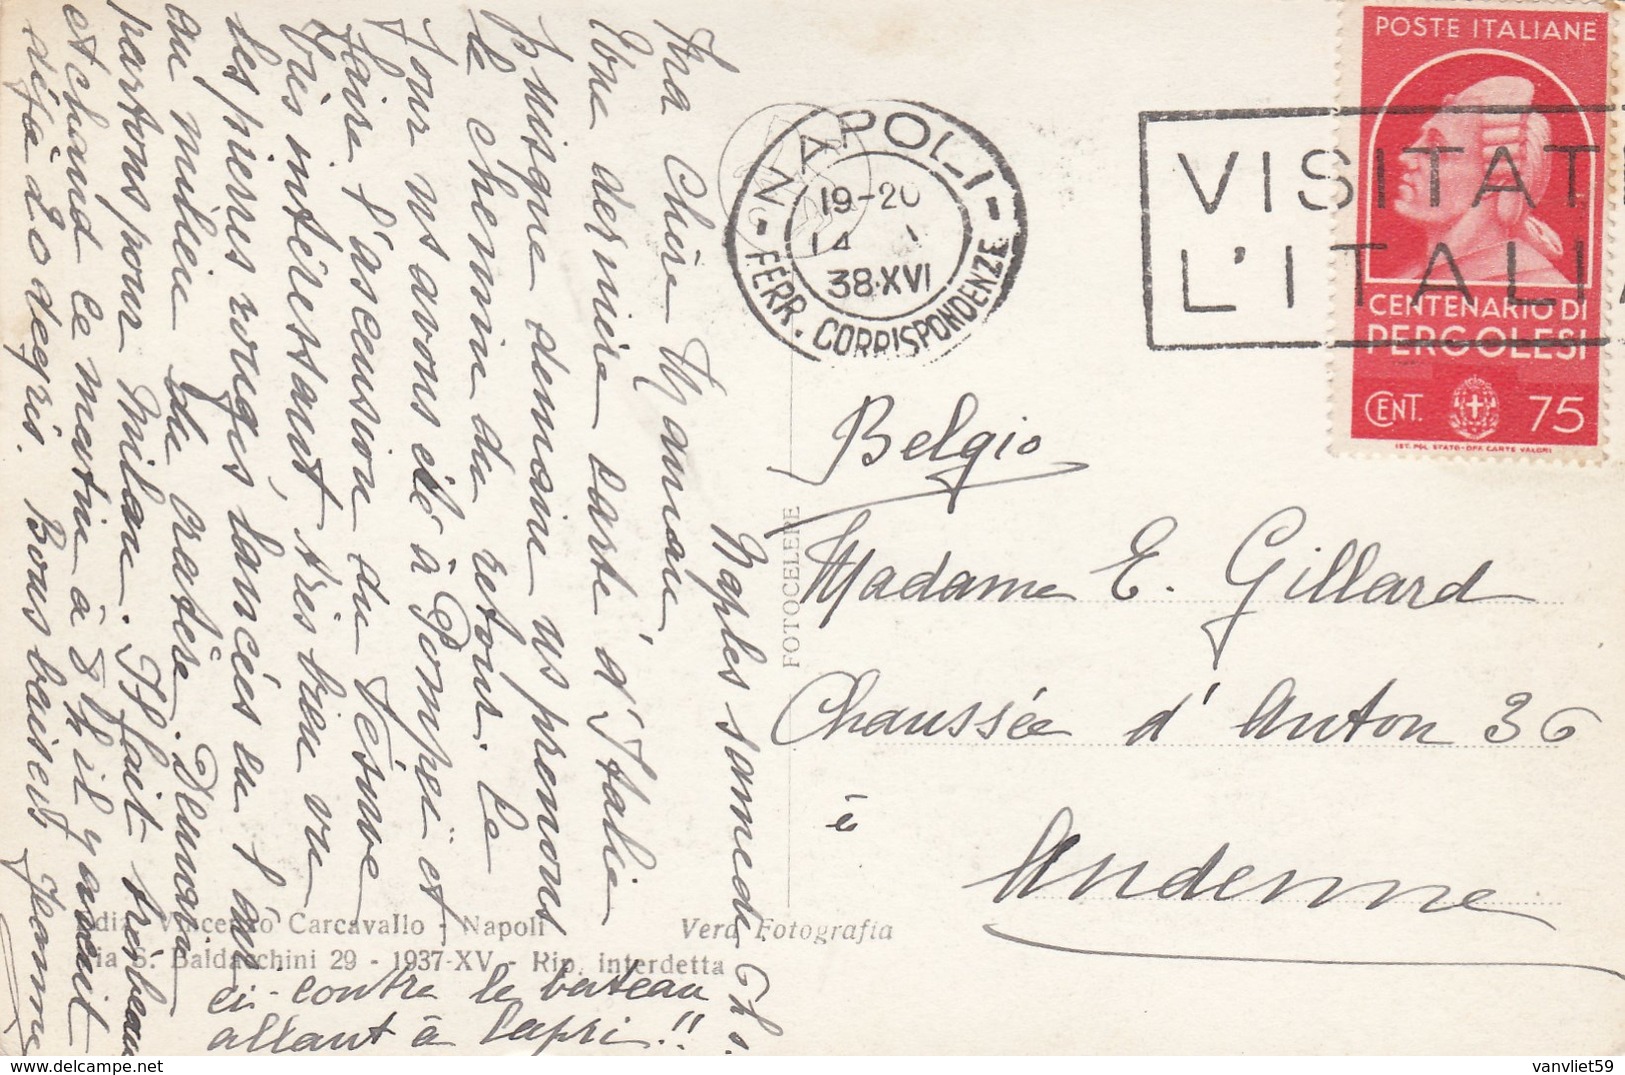 Naples samedi 6h.
Ma Chère Maman
Une dernière carte d'Italie
puisque demain ns prenons
le chemin du retour. Ce
jour ns avons été à Pompei et
faire l'ascension du Vésuve
très intéressant, très bien vu
les pierres rouges lancées en l'air
au milieu du cratère. Demain
partons pour Milan. Il fait très beau
et chaud ce matin à 8h il y avait
déjà 20 degrés. Bons baisers Jeanne
ci-contre le bateau
allant à Capri!!
Vincenzo Carcavallo - Napoli
S. Baldacchini 29 - 1937-XV - Rip. interdetta
Vera Fotografia
FOTOCELERE
NAPOLI
19-20
14
38·XVI
FERR. CORRISPONDENZE
VISITATE
L'ITALIA
POSTE ITALIANE
CENTENARIO DI
PERGOLESI
CENT. 75
IST. POL. STATO-OFF. CARTE VALORI
Belgio
Madame E. Gillard
Chaussée d'Anton 36
à
Andenne
vanvliet59